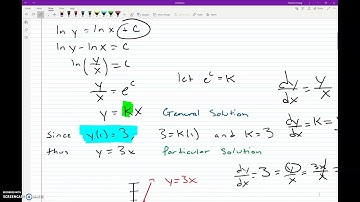 ln y = ln x + C
ln y - ln x = C
ln(y/x) = C
let e^c = K
y/x = e^c
dy/dx = y/x
y = Kx General Solution
dy/dx = K =
Since y(1) = 3, 3 = K(1) and K = 3
thus y = 3x Particular Solution
dy/dx = 3 = y/x = 3x/x =
y = 3x